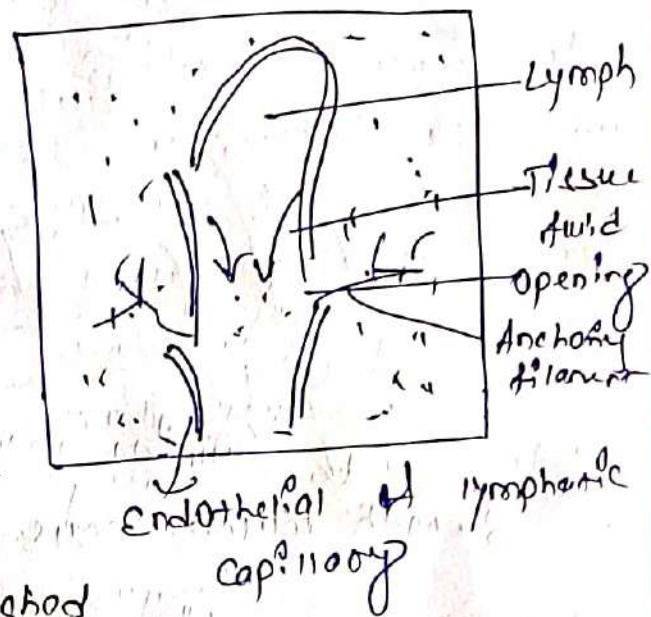 Lymph
Tissue
fluid
opening
Anchoriy
filament
Endothelial of lymphatic
capillaory
chod